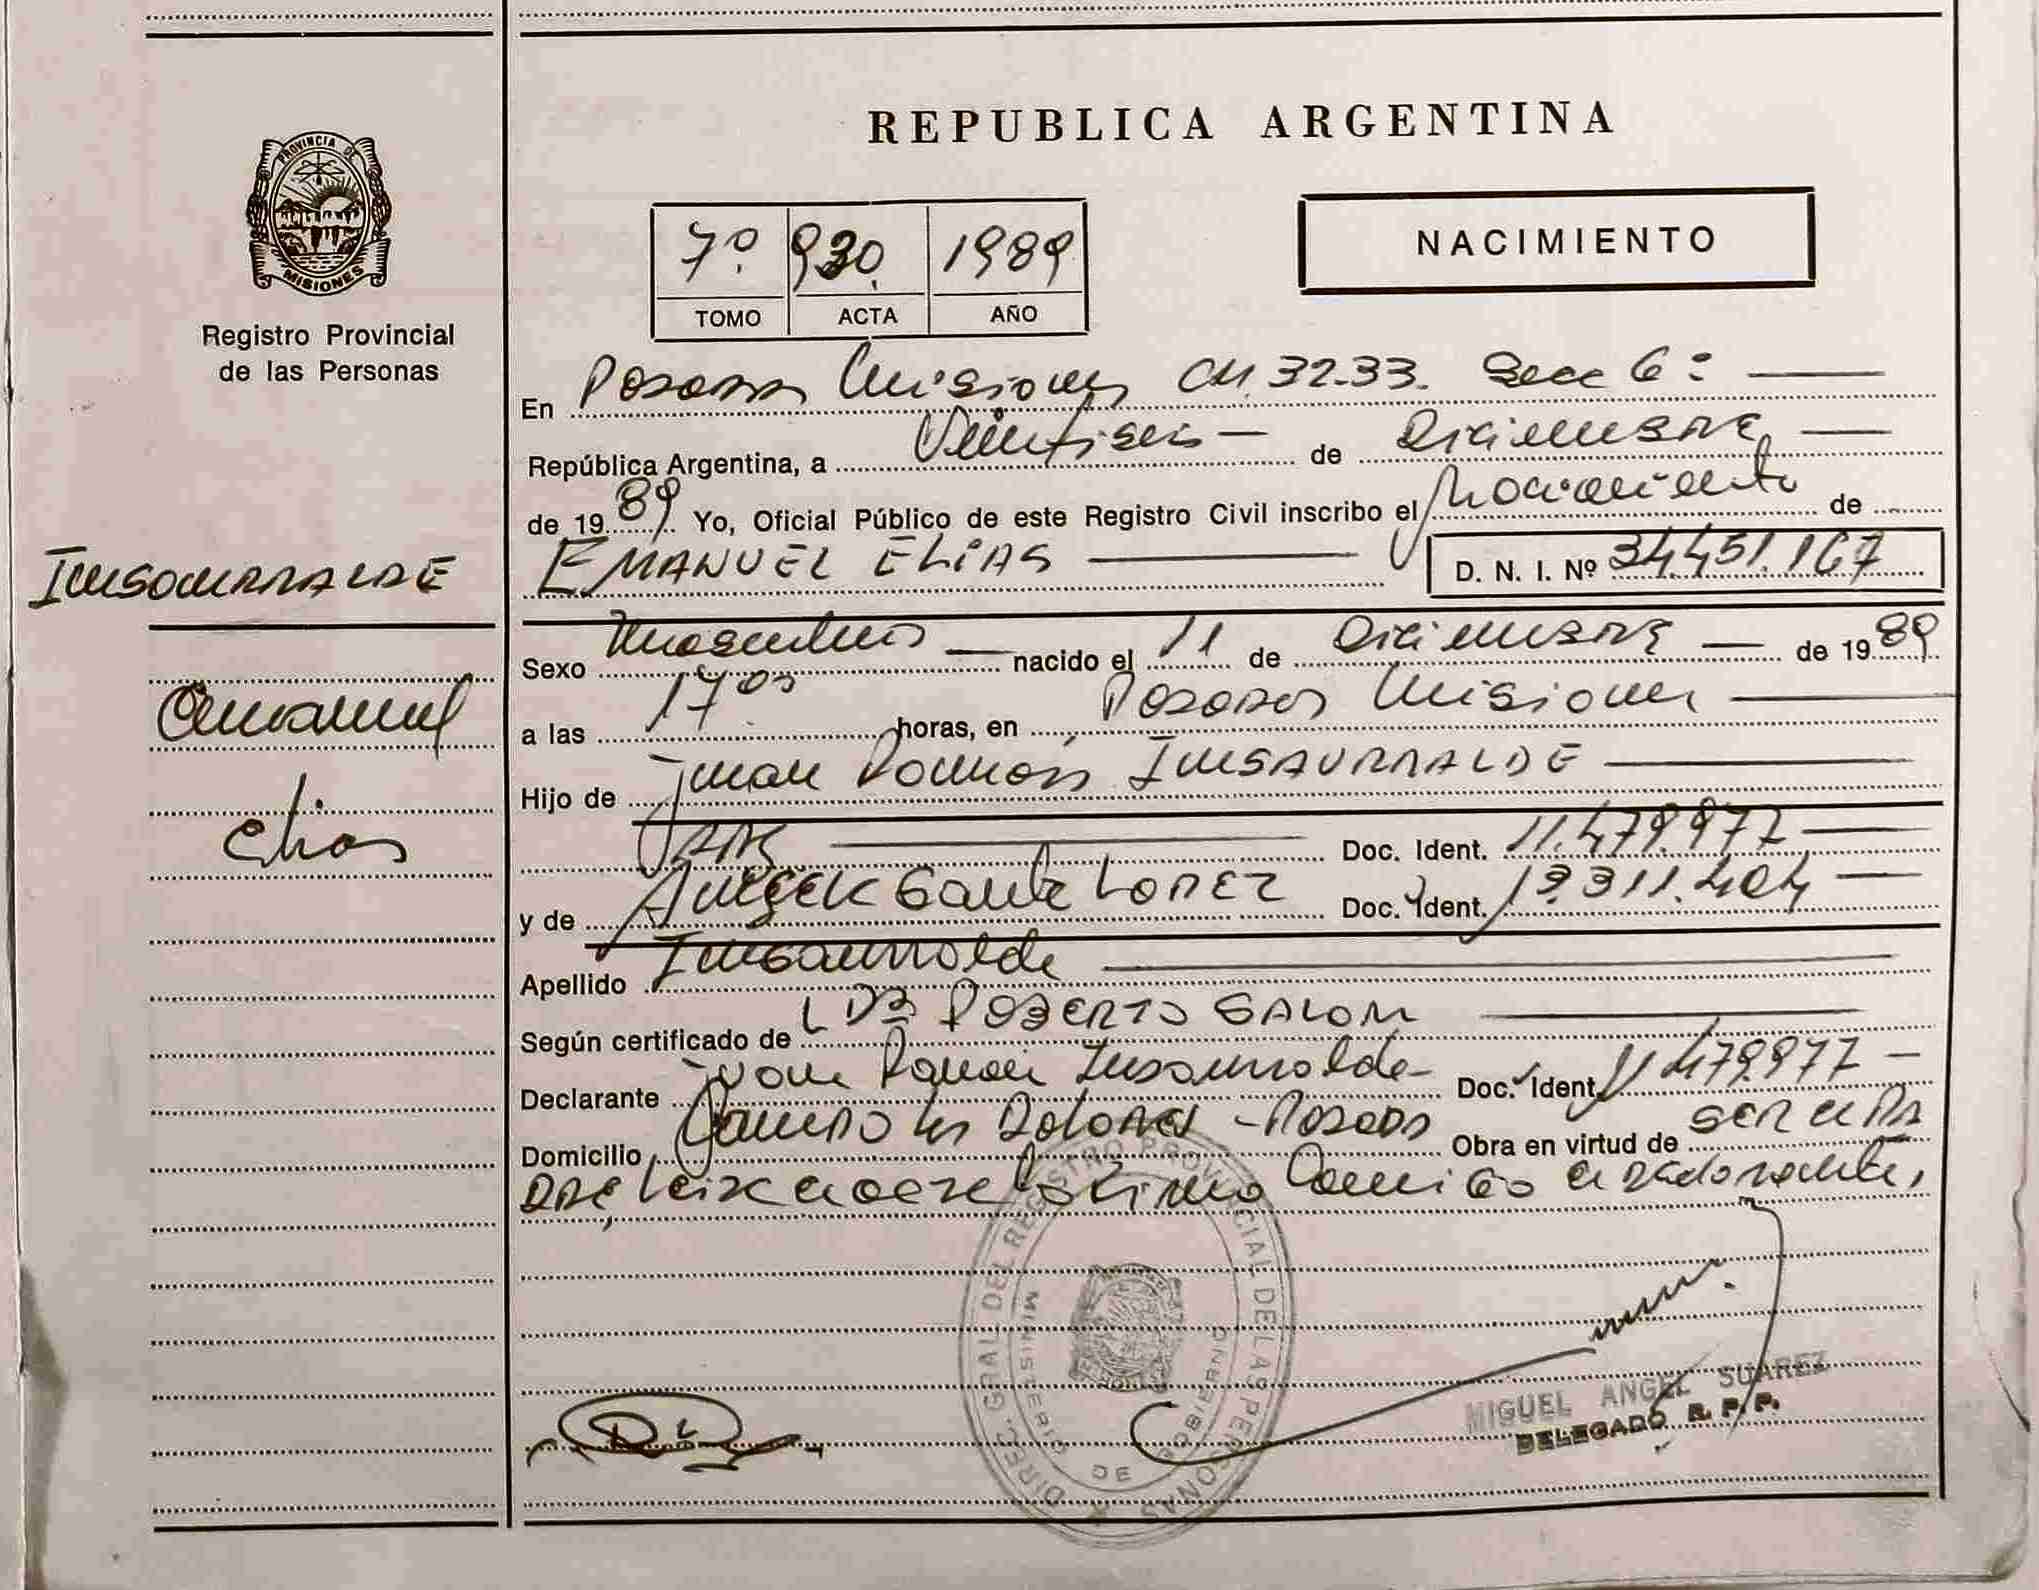 PROVINCIA DE
MISIONES
Registro Provincial
de las Personas
INSAURRALDE
Emanuel
Elias
REPUBLICA ARGENTINA
7º 930 1989
TOMO ACTA AÑO
NACIMIENTO
En Posadas Misiones CH. 32-33. Secc 6:
República Argentina, a Veintiseis de Diciembre
de 1989 Yo, Oficial Público de este Registro Civil inscribo el Nacimiento de
EMANUEL ELIAS D. N. I. Nº 34.451.167
Sexo Masculino nacido el 11 de Diciembre de 1989
a las 17 00 horas, en Posadas Misiones
Hijo de Juan Ramón INSAURRALDE
Doc. Ident. 11.479.977
y de Lopez Doc. Ident. 13.311.404
Apellido Insaurralde
Según certificado de Roberto GALON
Declarante Juan Ramon Insaurralde Doc. Ident. 11.479.977
Domicilio Dolores - Posadas Obra en virtud de
DIREC. GRAL. DEL REGISTRO PROVINCIAL DE LAS PERSONAS
MINISTERIO DE
MIGUEL ANGEL SUAREZ
DELEGADO R. P. P.